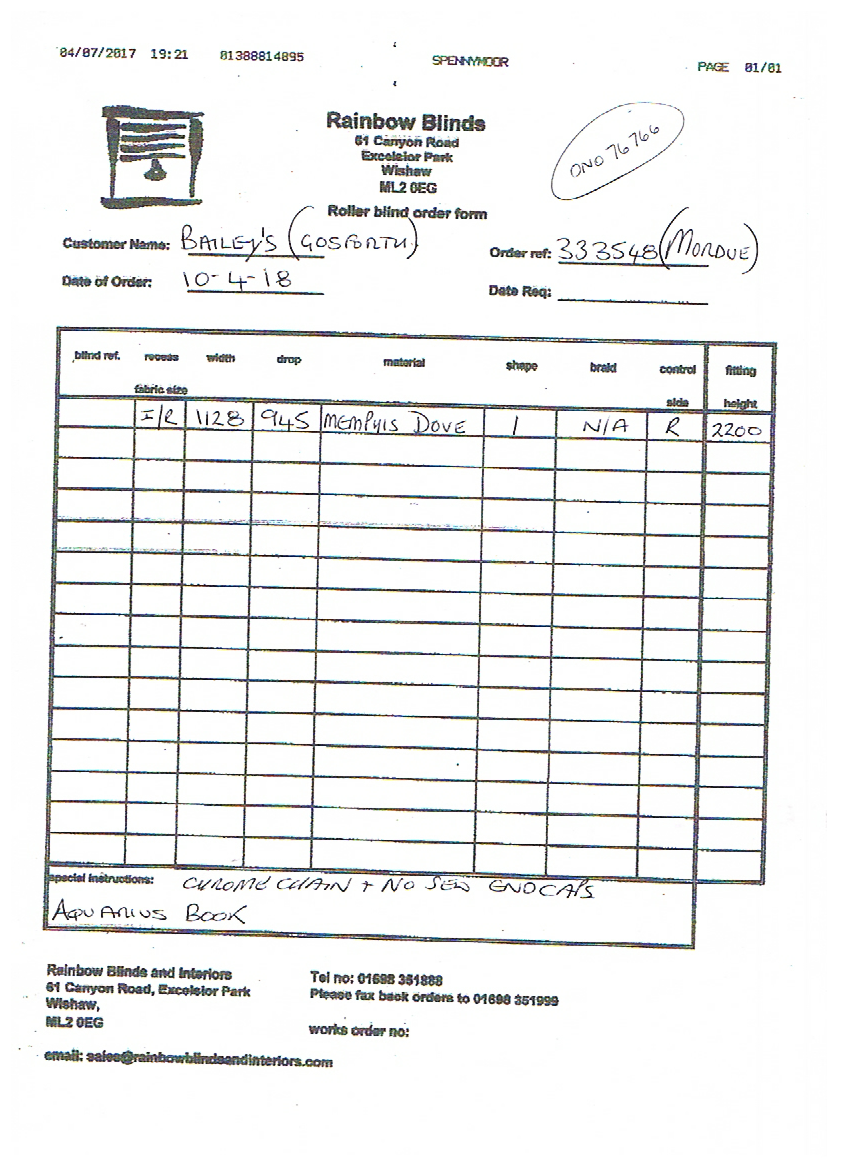 04/07/2017 19:21 01388814895 SPENNYMOOR PAGE 01/01
Rainbow Blinds
61 Canyon Road
Excelsior Park
Wishaw
ML2 0EG
ONO 76766
Roller blind order form
Customer Name: BAILEY'S (GOSFORTH)
Order ref: 333548 (MORDUE)
Date of Order: 10-4-18
Date Req:
blind ref. recess width drop material shape braid control fitting
fabric size side height
I/R 1128 945 MEMPHIS DOVE 1 N/A R 2200
special instructions: CHROME CHAIN + NO SEW ENDCAPS
AQUARIUS BOOK
Rainbow Blinds and Interiors
61 Canyon Road, Excelsior Park
Wishaw,
ML2 0EG
Tel no: 01698 351888
Please fax back orders to 01698 351999
works order no:
email: sales@rainbowblindsandinteriors.com